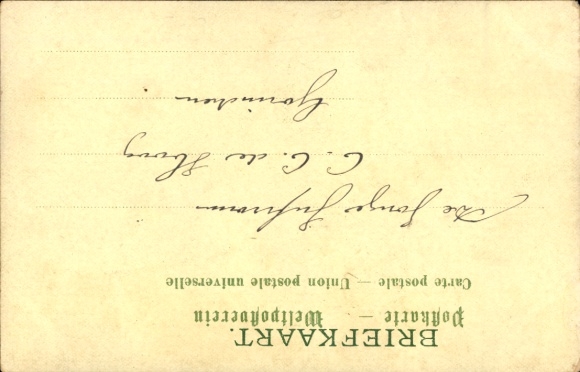 BRIEFKAART.
Postkarte — Weltpostverein
Carte postale — Union postale universelle
De Jonge Juffrouw
C. C. de Hoog
Gorinchem